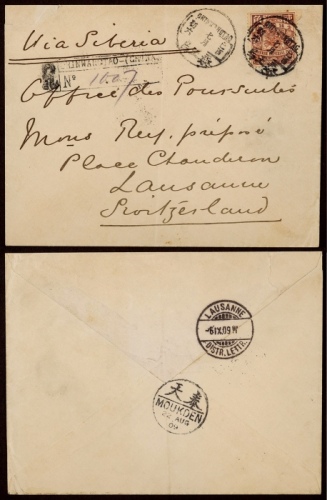 Via Siberia
No 1607
Office des Poursuites
Mons Ruf, préposé
Place Chauderon
Lausanne
Switzerland
LAUSANNE
-6.IX.09.
DISTR. LETTR.
天奉
MOUKDEN
22 AUG
09